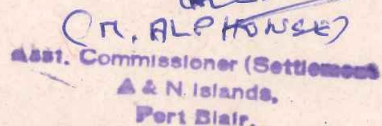 (M. ALPHONSE)
Asst. Commissioner (Settlement
A & N. Islands,
Port Blair.